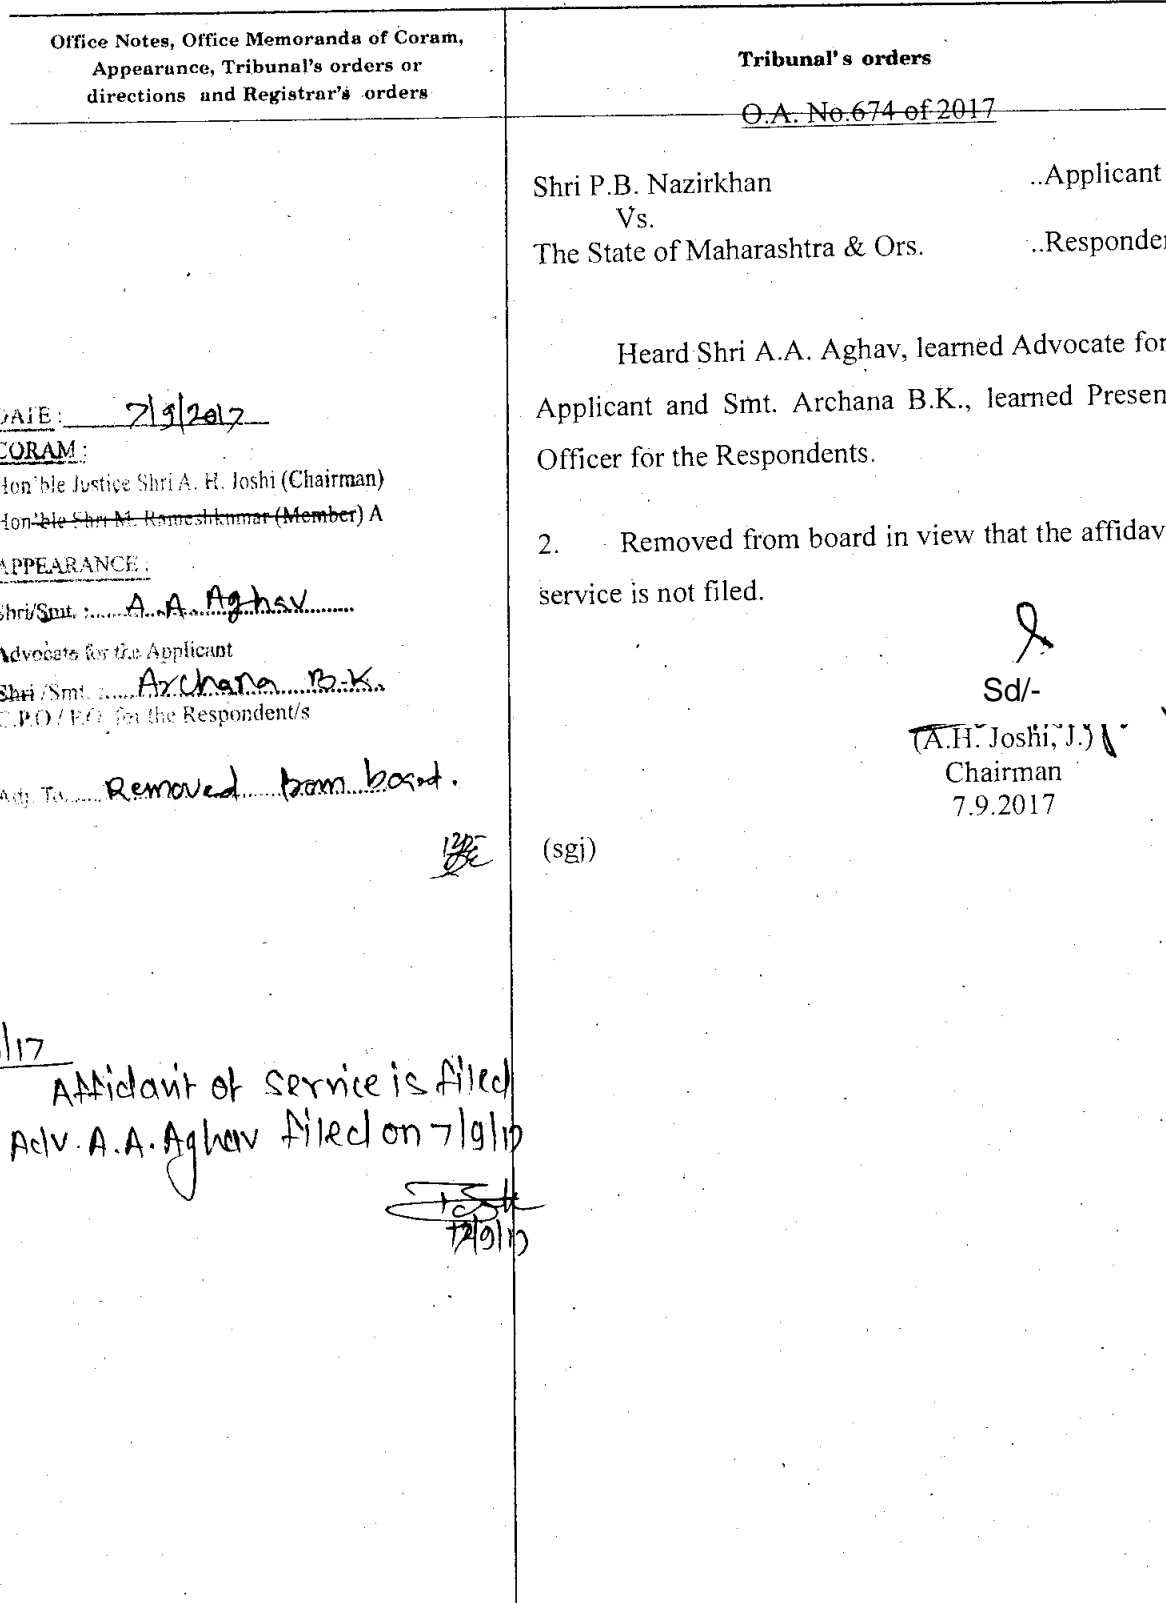 Office Notes, Office Memoranda of Coram,
Appearance, Tribunal's orders or
directions and Registrar's orders
DATE : 7/9/2017
CORAM :
Hon'ble Justice Shri A. H. Joshi (Chairman)
Hon'ble Shri M. Rameshkumar (Member) A
APPEARANCE :
Shri/Smt. : A. A. Aghav
Advocate for the Applicant
Shri /Smt. : Archana B.K.
C.P.O / P.O. for the Respondent/s
Adj. To Removed from board.
/17
Affidavit of Service is filed
Adv. A.A. Aghav filed on 7/9/17
Tribunal's orders
O.A. No.674 of 2017
Shri P.B. Nazirkhan ..Applicant
Vs.
The State of Maharashtra & Ors. ..Responde
Heard Shri A.A. Aghav, learned Advocate for
Applicant and Smt. Archana B.K., learned Presen
Officer for the Respondents.
2. Removed from board in view that the affidav
service is not filed.
Sd/-
(A.H. Joshi, J.)
Chairman
7.9.2017
(sgj)